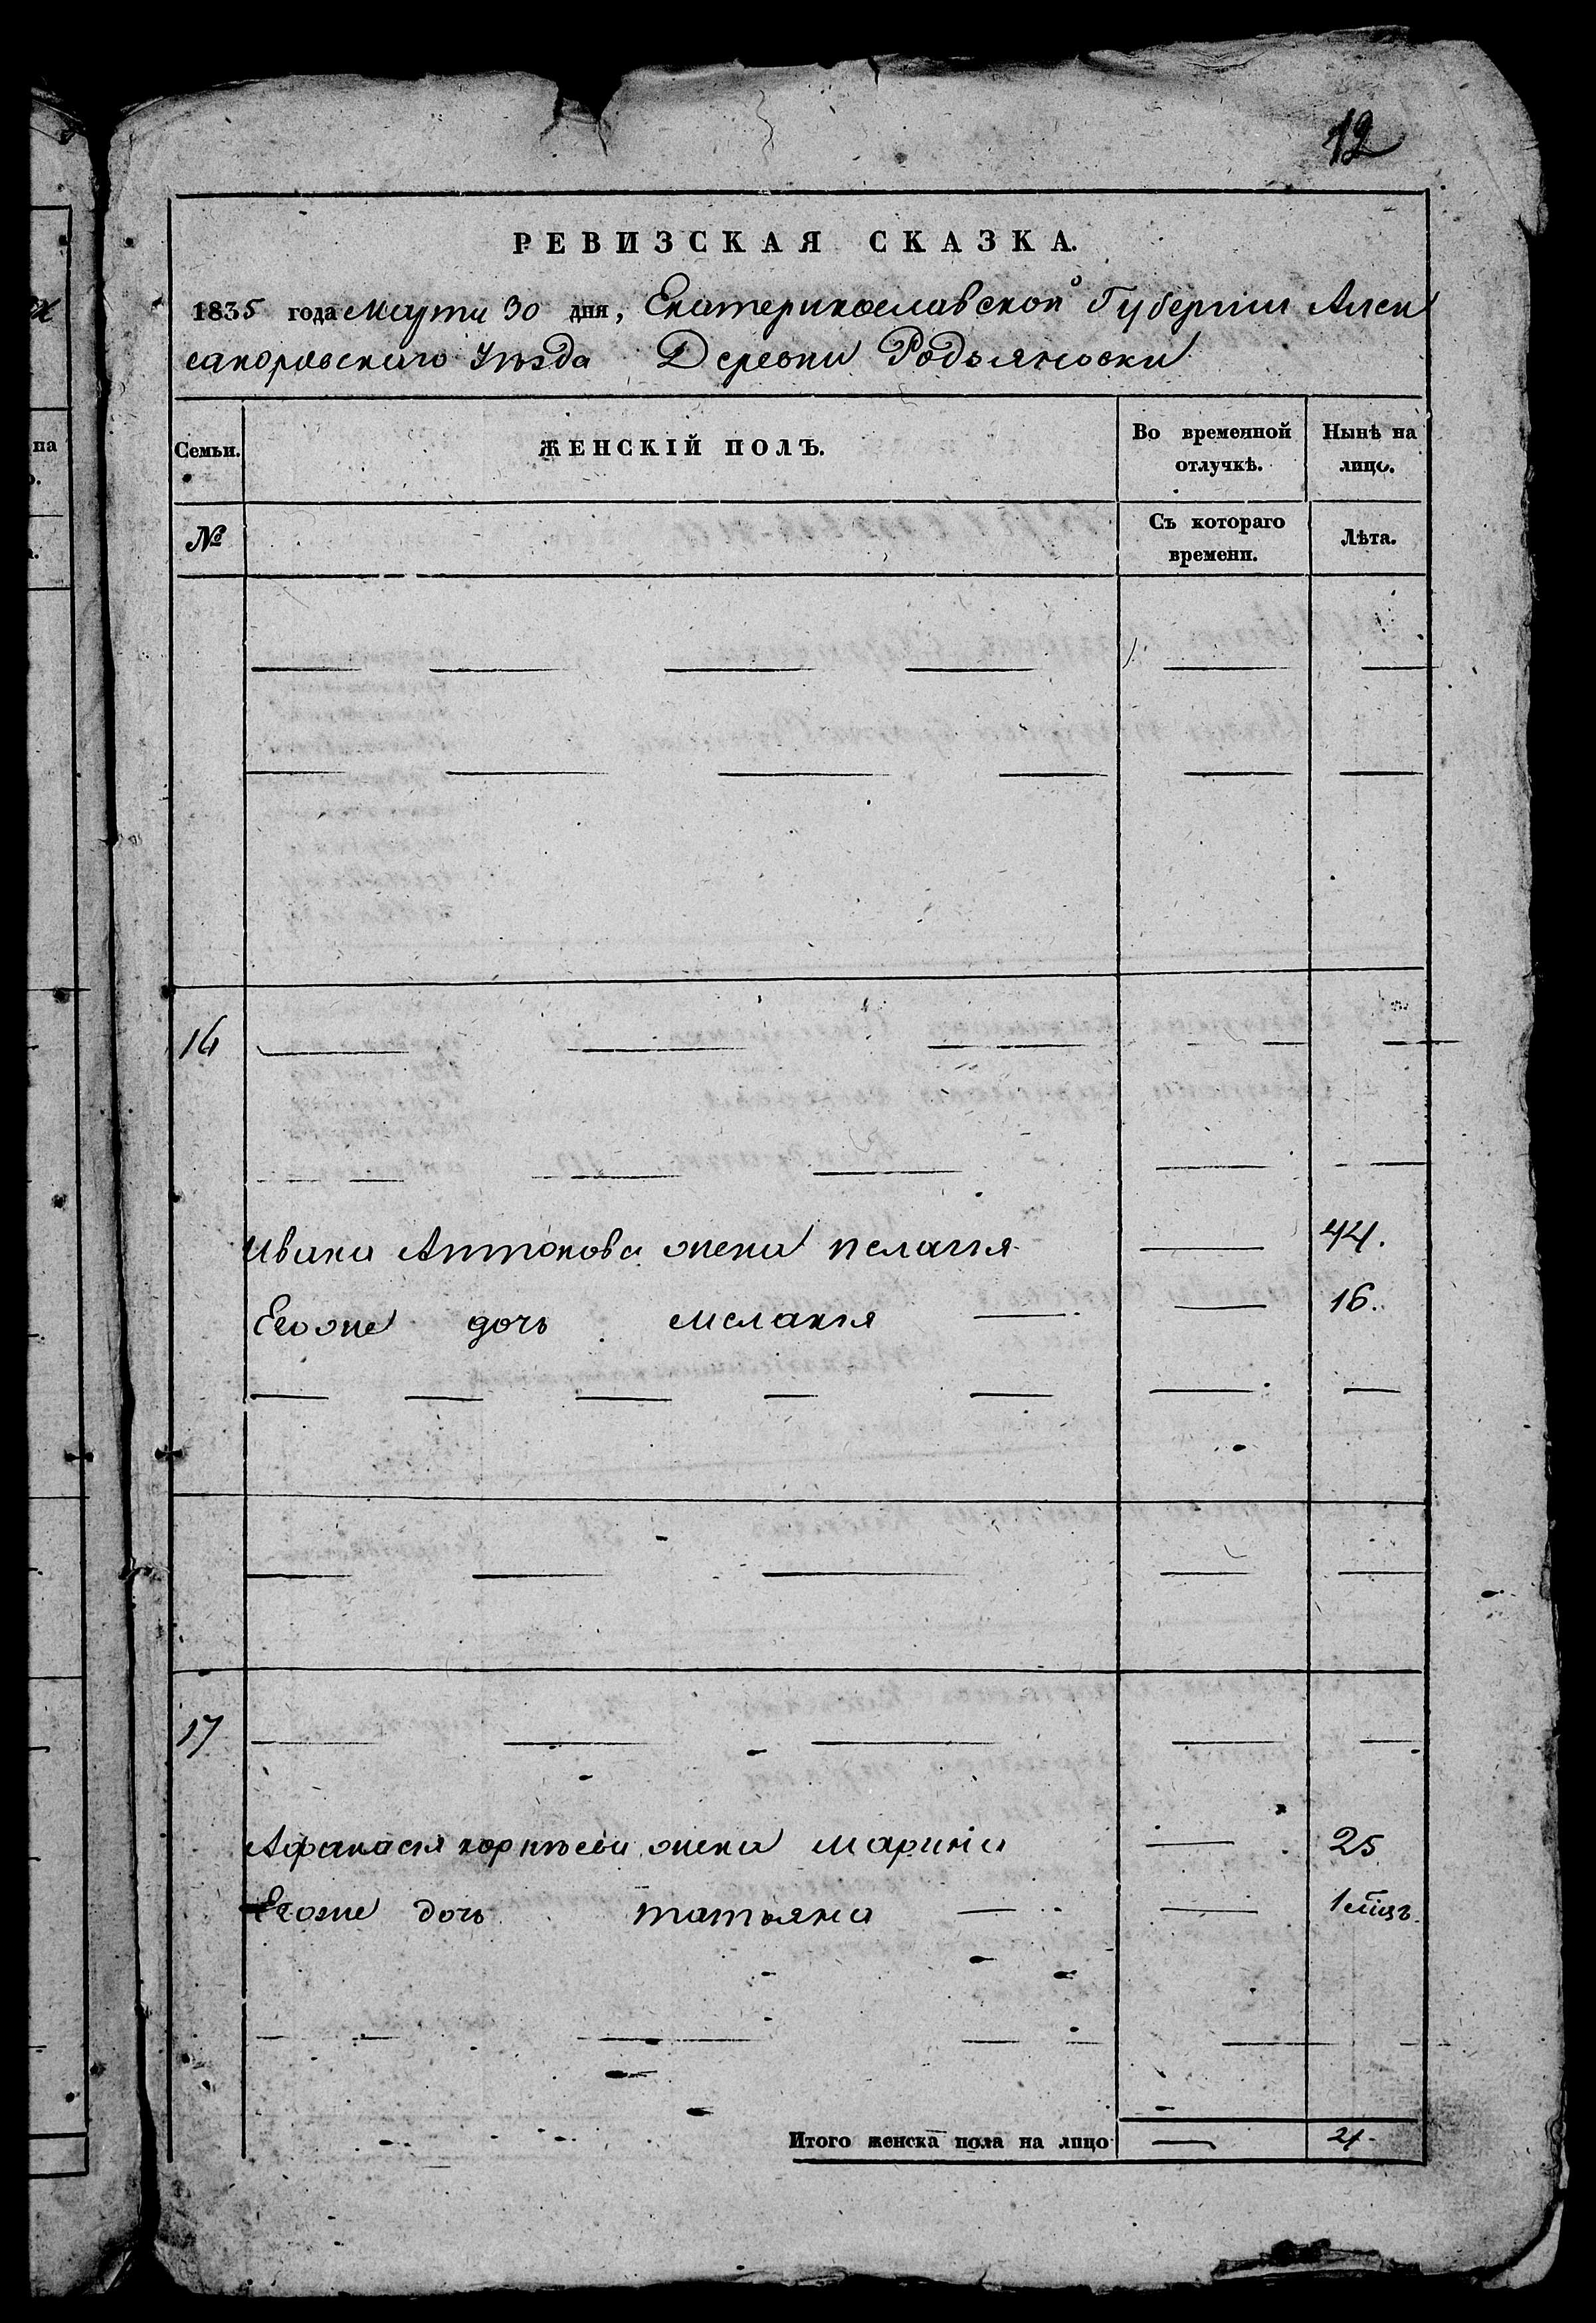 12
РЕВИЗСКАЯ СКАЗКА.
1835 года Марта 30 дня, Екатеринославской Губернии Алек
сандровскаго Уезда Деревни Родьяновки
Семьи.
ЖЕНСКІЙ ПОЛЪ.
Во временной отлучкѣ.
Нынѣ на лицо.
№
Съ котораго времени.
Лѣта.
16
Ивана Антонова жена пелагия 44.
Егоже дочь мелания 16.
17
Афанасия корнѣева жена марина 25
Егоже дочь татьяна 1 мцъ.
Итого женска пола на лицо 4